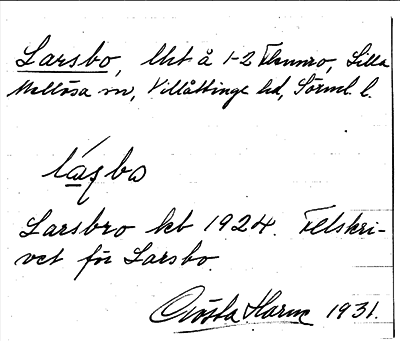 Larsbo, lht å 1-2 Elsumro, Lilla
Mellösa sn, Villåttinge hd, Sörml. l.
láşbo
Larsbro kbt 1924. Felskri-
vet för Larsbo.
Gösta Harm 1931.